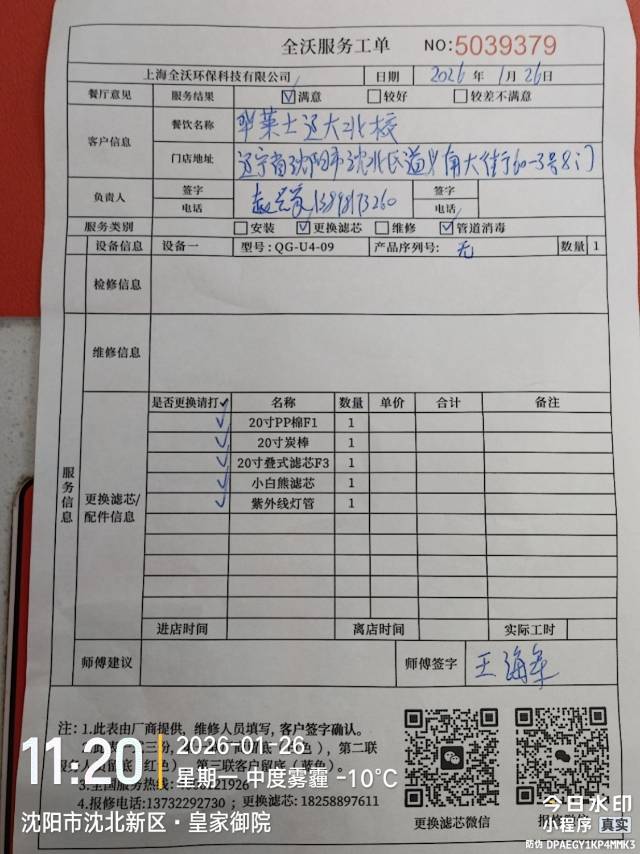 全沃服务工单 NO:5039379
上海全沃环保科技有限公司 日期 2026 年 1月 26日
餐厅意见 服务结果 ☑满意 □较好 □较差不满意
客户信息 餐饮名称 华莱士辽大北校
门店地址 辽宁省沈阳市沈北区道义南大街60-3号8门
负责人 签字 签字
电话 13898173260 电话
服务类别 □安装 ☑更换滤芯 □维修 ☑管道消毒
设备信息 设备一 型号:QG-U4-09 产品序列号: 无 数量 1
检修信息
维修信息
服务信息
更换滤芯/配件信息
是否更换请打✓ 名称 数量 单价 合计 备注
✓ 20寸PP棉F1 1
✓ 20寸炭棒 1
✓ 20寸叠式滤芯F3 1
✓ 小白熊滤芯 1
✓ 紫外线灯管 1
进店时间 离店时间 实际工时
师傅建议 师傅签字 王海军
注: 1.此表由厂商提供, 维修人员填写, 客户签字确认。
), 第二联
), 第三联客户留存 (蓝色)。
3.全国服务热线:
4.报修电话:13732292730 ; 更换滤芯: 18258897611
更换滤芯微信
11:20
2026-01-26
星期一 中度雾霾 -10℃
沈阳市沈北新区·皇家御院
今日水印
小程序 真实
防伪 DPAEGY1KP4MMK3